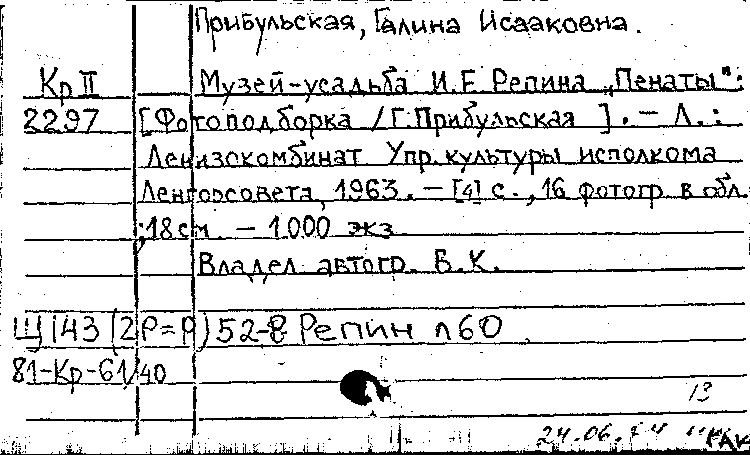 Прибульская, Галина Исааковна.
Кр II Музей-усадьба И.Е Репина „Пенаты":
2297 [Фотоподборка / Г. Прибульская ]. – Л. :
Ленизокомбинат Упр. культуры исполкома
Ленгорсовета, 1963. – [4] с., 16 фотогр. в обл.
; 18 см. – 1000 экз.
Владел. автогр. В.К.
Щ143(2Р=Р)52-8 Репин л60
81-Кр-61/40
13
24.06.